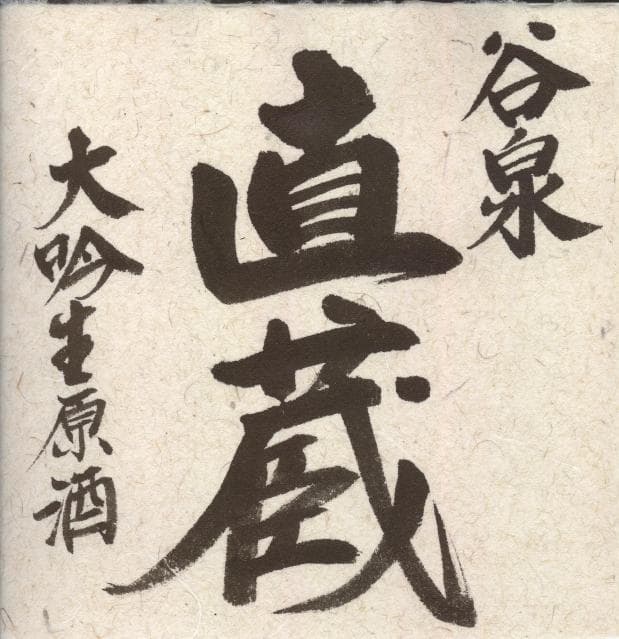 谷泉
直蔵
大吟生原酒